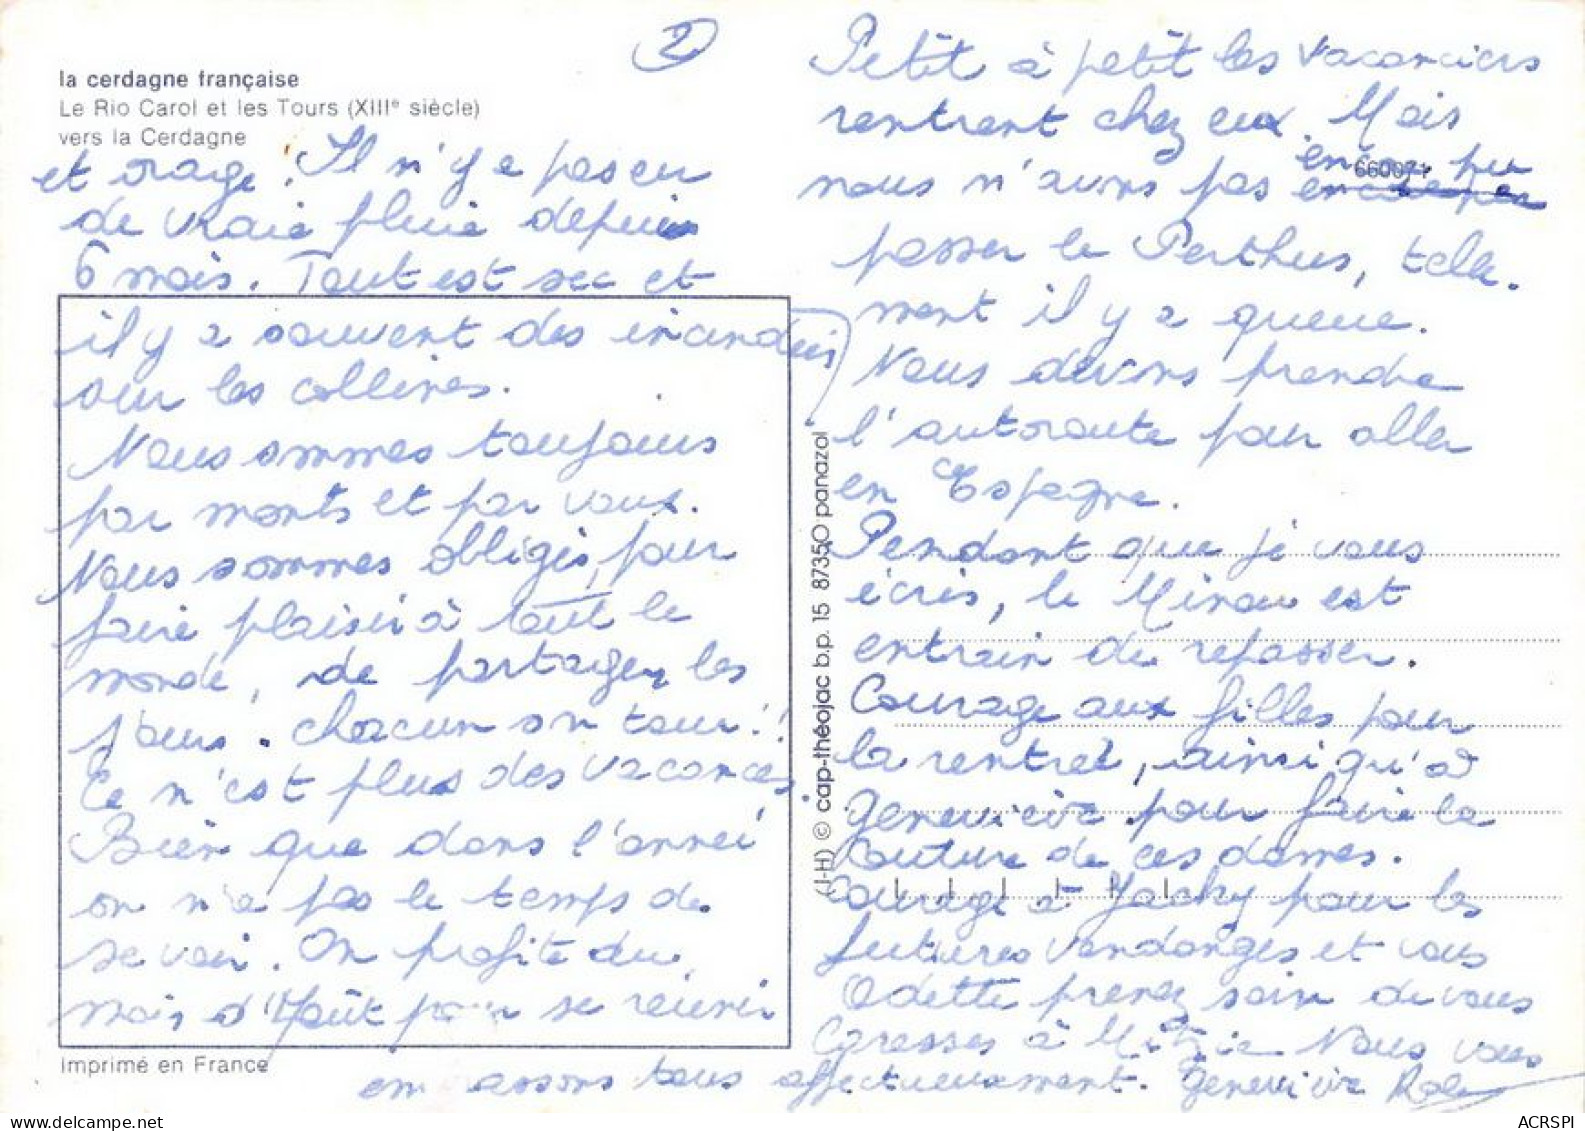 la cerdagne française
Le Rio Carol et les Tours (XIIIe siècle)
vers la Cerdagne
2
et orage. Il n'y a pas eu
de vraie pluie depuis
6 mois. Tout est sec et
il y a souvent des incendies
sur les collines.
Nous sommes toujours
par monts et par vaux.
Nous sommes obligés, pour
faire plaisir à tout le
monde, de partager les
jours. chacun son tour!!
Ce n'est plus des vacances.
Bien que dans l'année
on n'a pas le temps de
se voir. On profite du
mois d'Août pour se réunir
Imprimé en France
Petit à petit les vacanciers
rentrent chez eux. Mais
nous n'avons pas encore pu
660071
passer le Perthus, telle-
ment il y a queue.
Nous devons prendre
l'autoroute pour aller
en Espagne.
Pendant que je vous
écris, le Mirau est
entrain de repasser.
Courage aux filles pour
la rentrée, ainsi qu'à
Geneviève pour faire la
couture de ces dames.
Courage à Jacky pour les
futures vendanges et vous
Odette prenez soin de vous
Caresses à Nous vous
embrassons tous affectueusement. Geneviève
(J-H) © cap-théojac b.p. 15 87350 panazol
ACRSPI